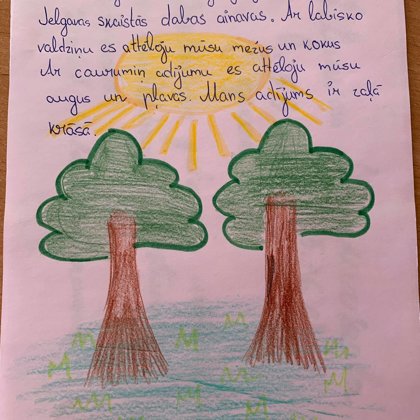 Jelgavas skaistās dabas ainavas. Ar labisko
valdziņu es attēloju mūsu mežus un kokus
Ar caurumiņ adījumu es attēloju mūsu
augus un pļavas. Mans adījums ir zaļā
krāsā.